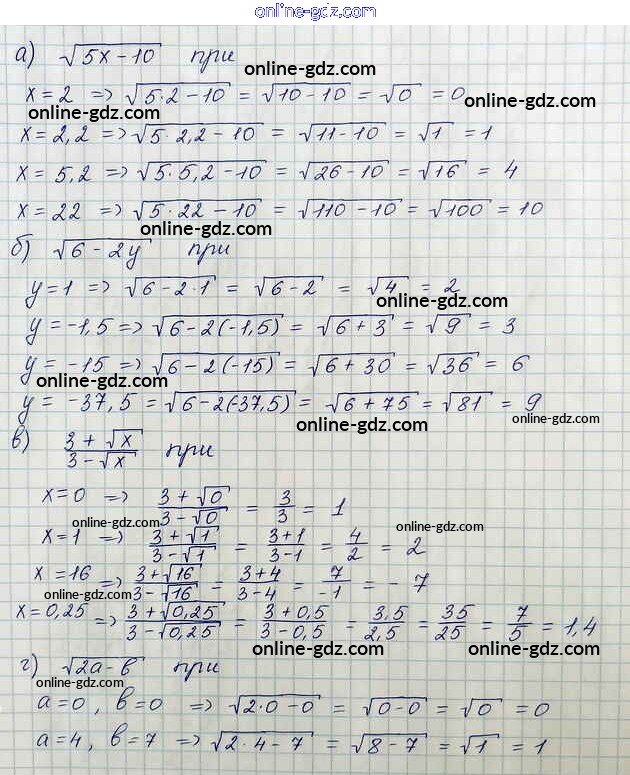 online-gdz.com
а) √5x-10 при
online-gdz.com
x=2 => √5·2-10 = √10-10 = √0 = 0
online-gdz.com
x=2,2 => √5·2,2-10 = √11-10 = √1 = 1
x=5,2 => √5·5,2-10 = √26-10 = √16 = 4
x=22 => √5·22-10 = √110-10 = √100 = 10
online-gdz.com
б) √6-2y при
y=1 => √6-2·1 = √6-2 = √4 = 2
online-gdz.com
y=-1,5 => √6-2(-1,5) = √6+3 = √9 = 3
y=-15 => √6-2(-15) = √6+30 = √36 = 6
online-gdz.com
y=-37,5 = √6-2(-37,5) = √6+75 = √81 = 9
online-gdz.com
online-gdz.com
в) 3+√x / 3-√x при
online-gdz.com
x=0 => 3+√0 / 3-√0 = 3/3 = 1
online-gdz.com
online-gdz.com
x=1 => 3+√1 / 3-√1 = 3+1 / 3-1 = 4/2 = 2
x=16 => 3+√16 / 3-√16 = 3+4 / 3-4 = 7/-1 = -7
online-gdz.com
x=0,25 => 3+√0,25 / 3-√0,25 = 3+0,5 / 3-0,5 = 3,5/2,5 = 35/25 = 7/5 = 1,4
online-gdz.com
online-gdz.com
г) √2a-b при
online-gdz.com
a=0, b=0 => √2·0-0 = √0-0 = √0 = 0
a=4, b=7 => √2·4-7 = √8-7 = √1 = 1